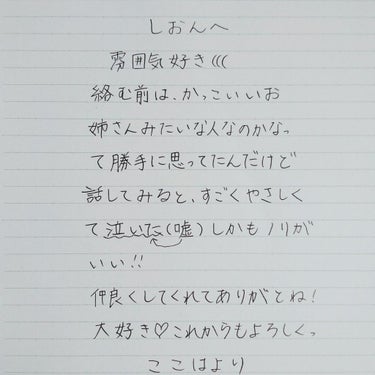 しおんへ
雰囲気好き(((
絡む前は、かっこいいお
姉さんみたいな人なのかなっ
て勝手に思ってたんだけど
話してみると、すごくやさしく
て泣いた(嘘)しかもノリが
いい!!
仲良くしてくれてありがとね!
大好き♡これからもよろしくっ
ここはより